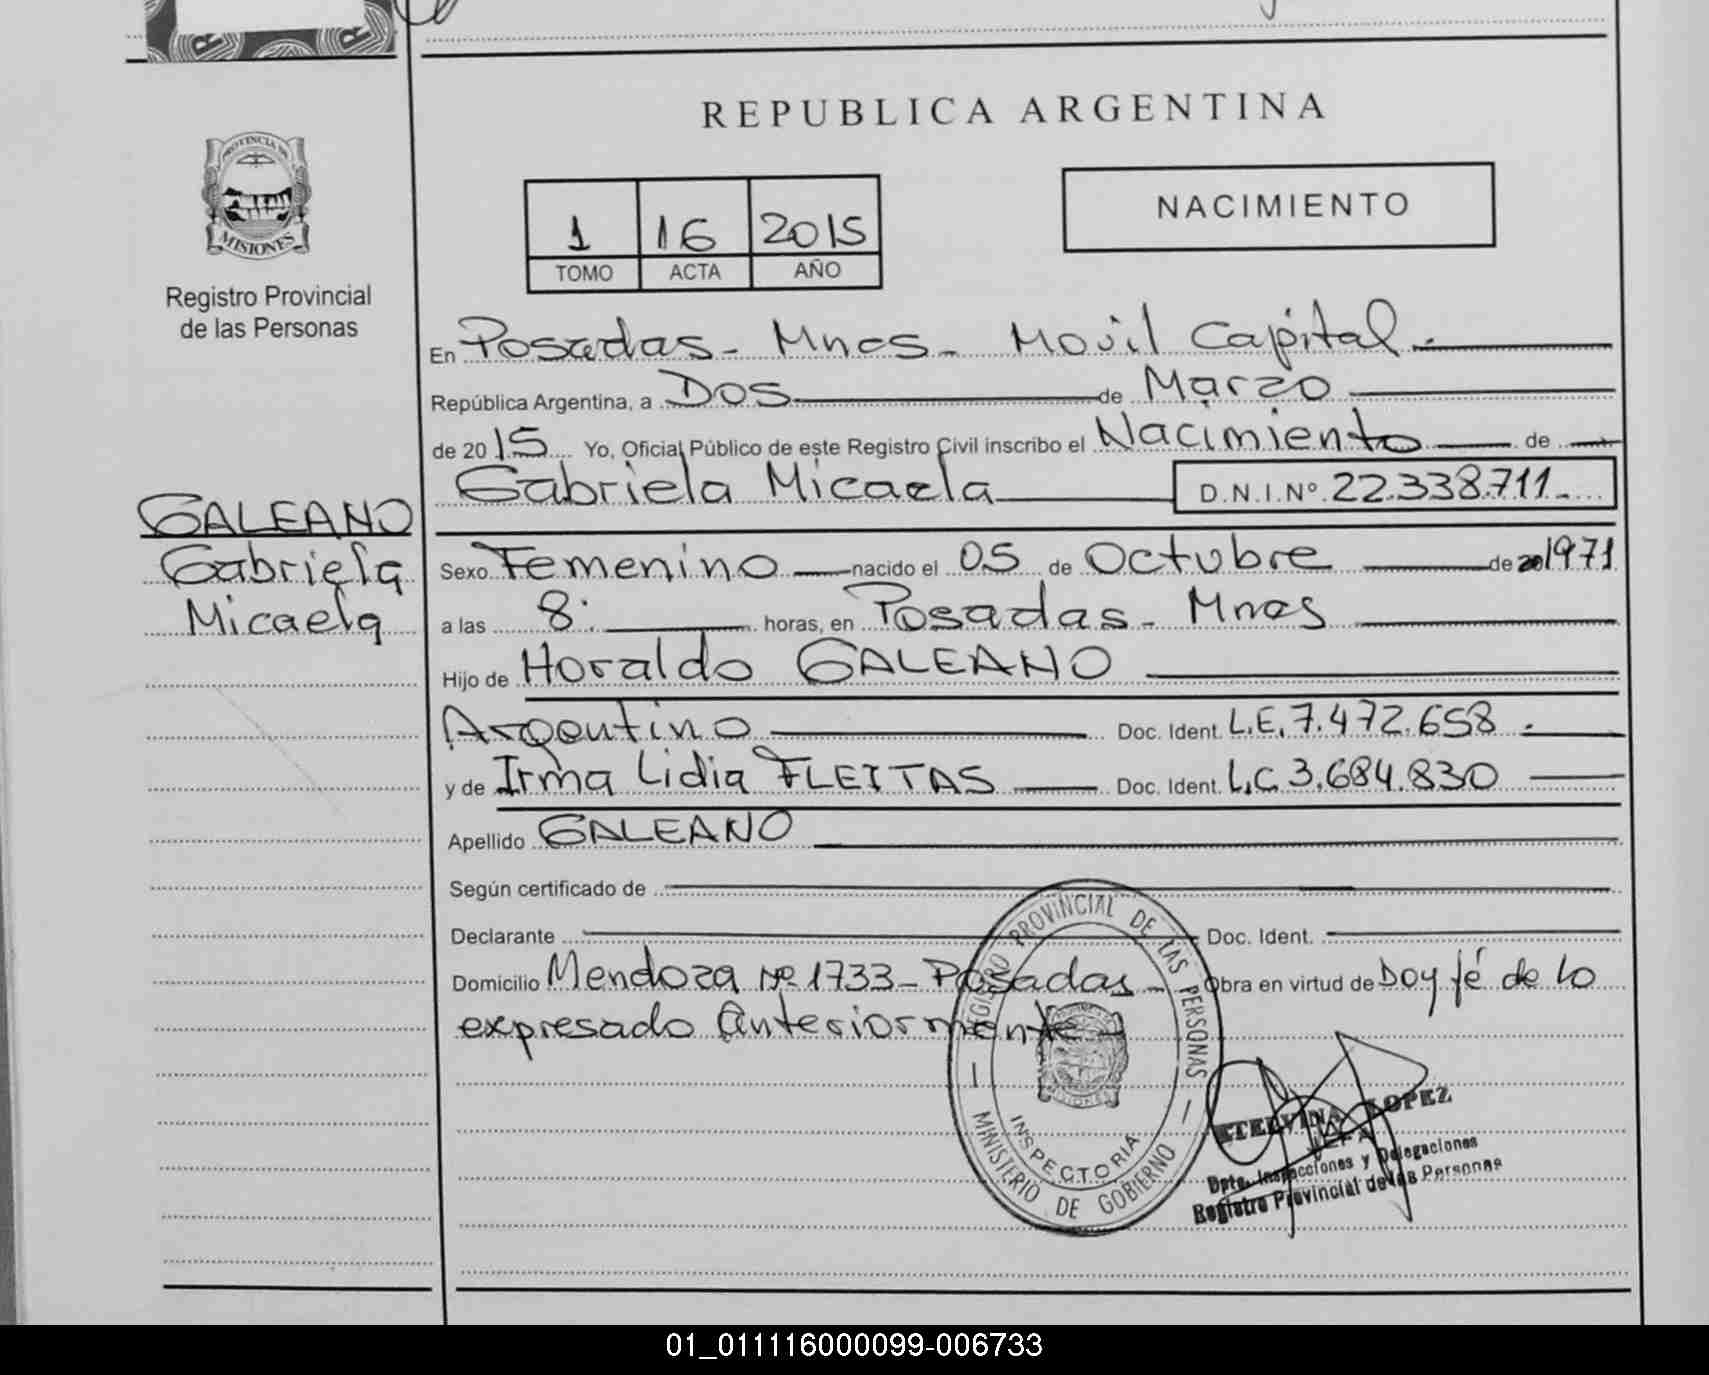 REPUBLICA ARGENTINA
PROVINCIA DE
MISIONES
Registro Provincial
de las Personas
1 16 2015
TOMO ACTA AÑO
NACIMIENTO
En Posadas - Mnes - Movil Capital.-
República Argentina, a Dos de Marzo
de 2015 Yo, Oficial Público de este Registro Civil inscribo el Nacimiento de
Gabriela Micaela D.N.I.Nº 22.338.711-
GALEANO
Gabriela
Micaela
Sexo Femenino nacido el 05 de Octubre de 20 1971
a las 8: horas, en Posadas - Mnes
Hijo de Horaldo GALEANO
Argentino Doc. Ident. L.E. 7.472.658.-
y de Irma Lidia FLEITAS Doc. Ident. L.C 3.684.830
Apellido GALEANO
Según certificado de
Declarante Doc. Ident.
Domicilio Mendoza Nº 1733 - Posadas - Obra en virtud de Doy fé de lo
expresado Anteriormente
REGISTRO PROVINCIAL DE LAS PERSONAS
MINISTERIO DE GOBIERNO
INSPECTORIA
MISIONES
ETELVINA LOPEZ
JEFA
Dpto. Inspecciones y Delegaciones
Registro Provincial de las Personas
01_011116000099-006733